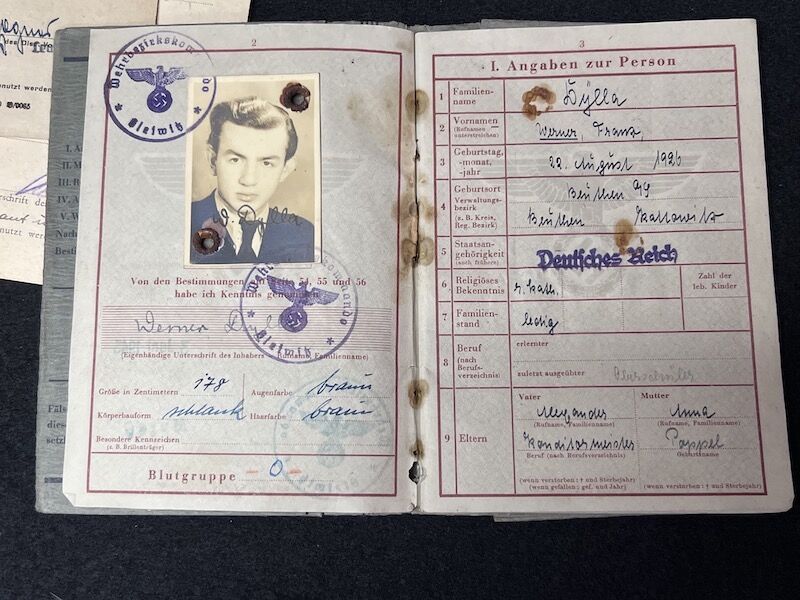 2
Wehrbezirkskommando
Gleiwitz
W. Dylla
Von den Bestimmungen auf Seite 54, 55 und 56
habe ich Kenntnis genommen
Wehrbezirkskommando
Gleiwitz
Werner
(Eigenhändige Unterschrift des Inhabers — Rufname, Familienname)
Größe in Zentimetern 178 Augenfarbe braun
Körperbauform schlank Haarfarbe braun
Besondere Kennzeichen
(z. B. Brillenträger)
Blutgruppe – O –
3
I. Angaben zur Person
1 Familienname Dylla
2 Vornamen (Rufnamen unterstreichen) Werner, Franz,
3 Geburtstag, -monat, -jahr 22. August 1926
4 Geburtsort Verwaltungsbezirk (z. B. Kreis, Reg. Bezirk) Beuthen O/S
Beuthen Kattowitz
5 Staatsangehörigkeit (auch frühere) Deutsches Reich
6 Religiöses Bekenntnis r. kath. Zahl der leb. Kinder
7 Familienstand ledig
8 Beruf (nach Berufsverzeichnis) erlernter
zuletzt ausgeübter
9 Eltern
Vater Mutter
Alexander Anna
(Rufname, Familienname) (Rufname, Familienname)
Konditormeister Pappel
Beruf (nach Berufsverzeichnis) Geburtsname
(wenn verstorben: † und Sterbejahr)
(wenn gefallen: gef. und Jahr) (wenn verstorben: † und Sterbejahr)